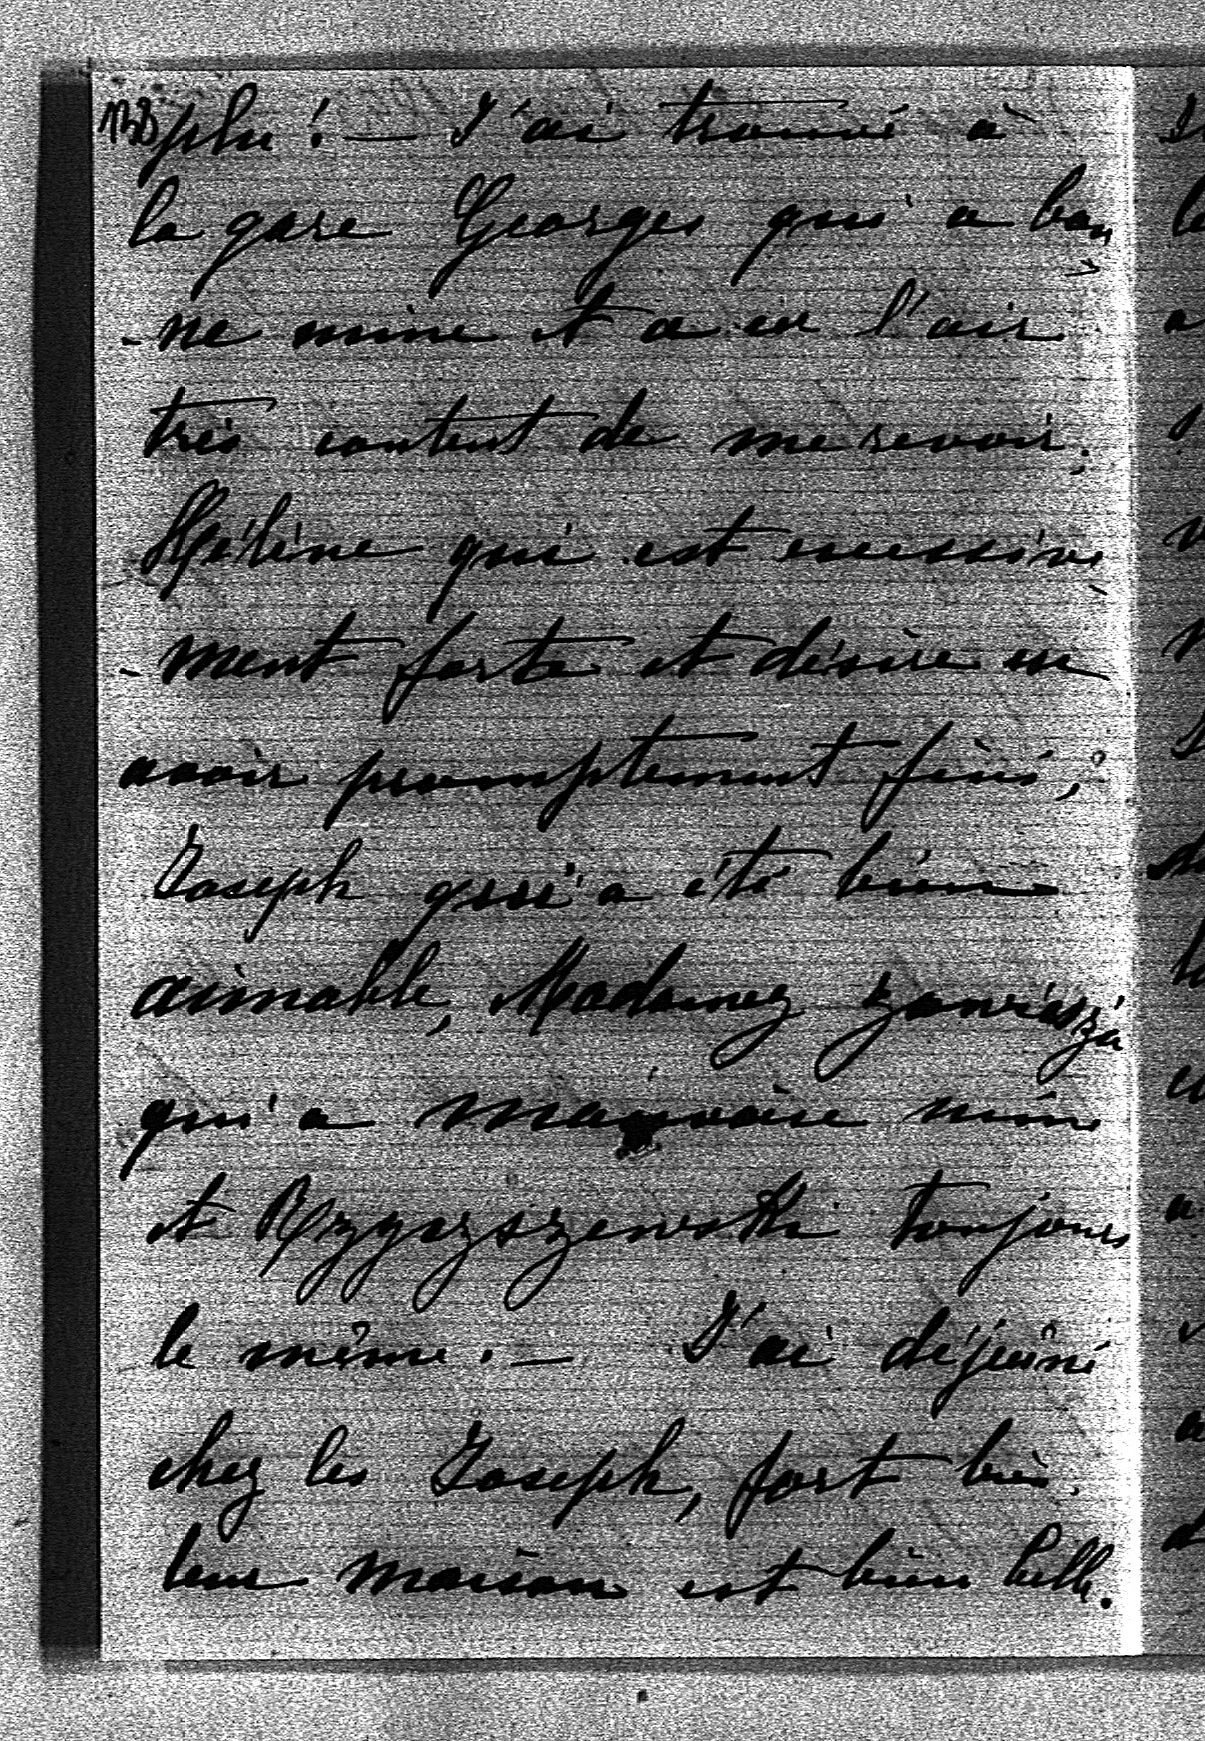 plu ! — J'ai trouvé à
la gare Georges qui a bon
-ne mine et a eu l'air
très content de me revoir;
Hélène qui est excessive
-ment forte et désire en
avoir promptement fini;
Joseph qui a été bien
aimable, Madame
qui a mauvaise mine
et toujours
le même. — J'ai déjeûné
chez les Joseph, fort bien
leur maison est bien belle.